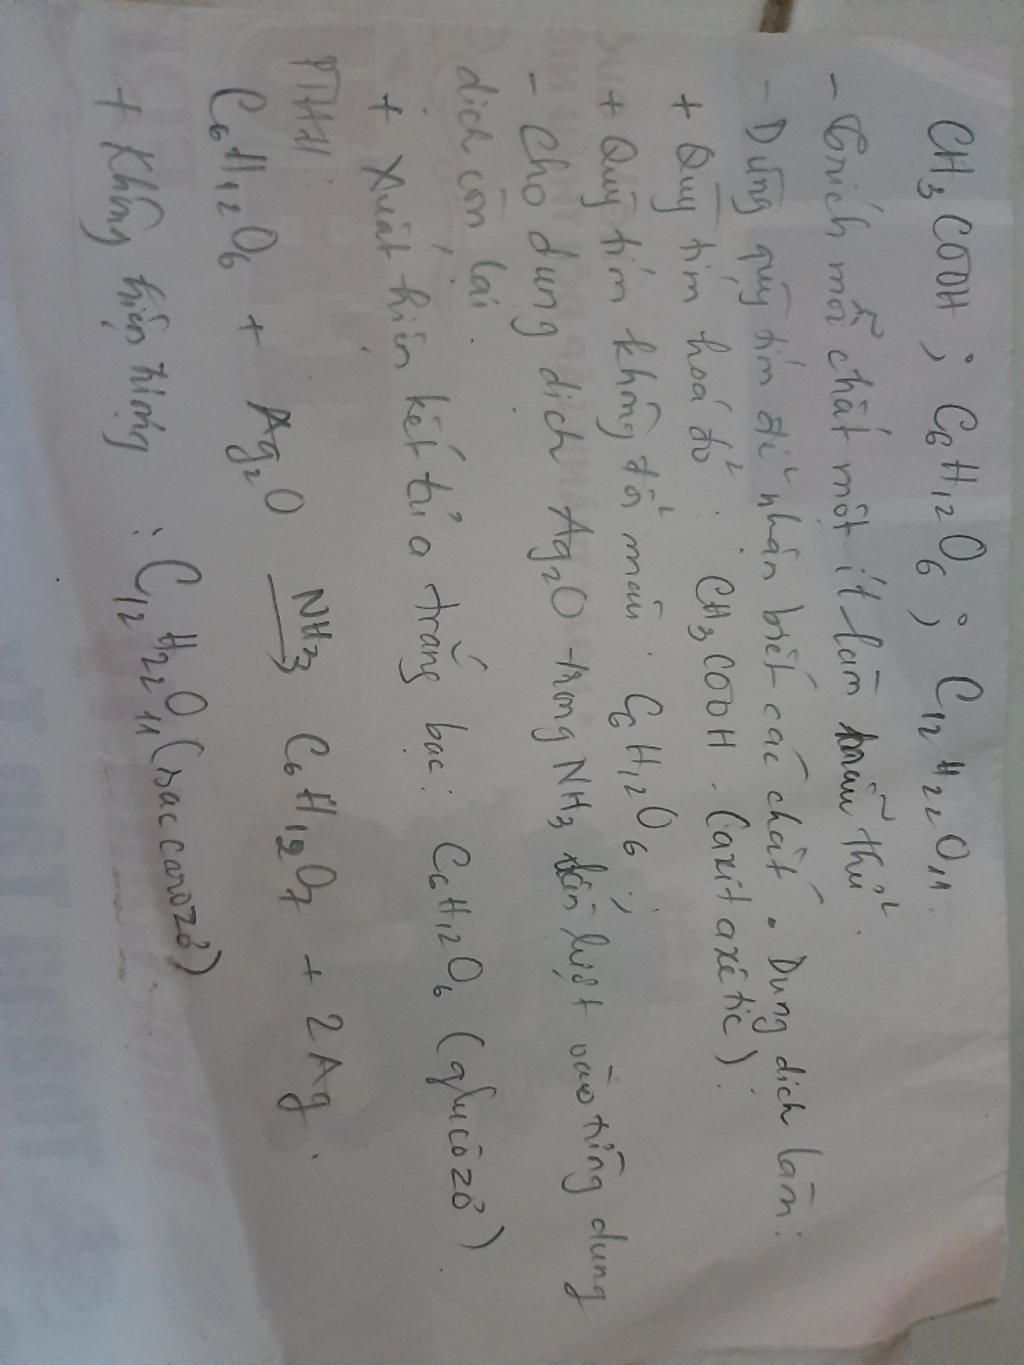 CH3COOH ; C6H12O6 ; C12H22O11.
- Trích mỗi chất một ít làm mẫu thử.
- Dùng quỳ tím để nhận biết các chất. Dung dịch làm:
+ Quỳ tím hoá đỏ : CH3COOH. (axit axêtic).
+ Quỳ tím không đổi màu : C6H12O6 ;
- Cho dung dịch Ag2O trong NH3 lần lượt vào từng dung
dịch còn lại.
+ Xuất hiện kết tủa trắng bạc: C6H12O6 (glucôzơ)
PTHH:
C6H12O6 + Ag2O NH3→ C6H12O7 + 2Ag.
+ Không hiện tượng : C12H22O11 (saccarozơ)